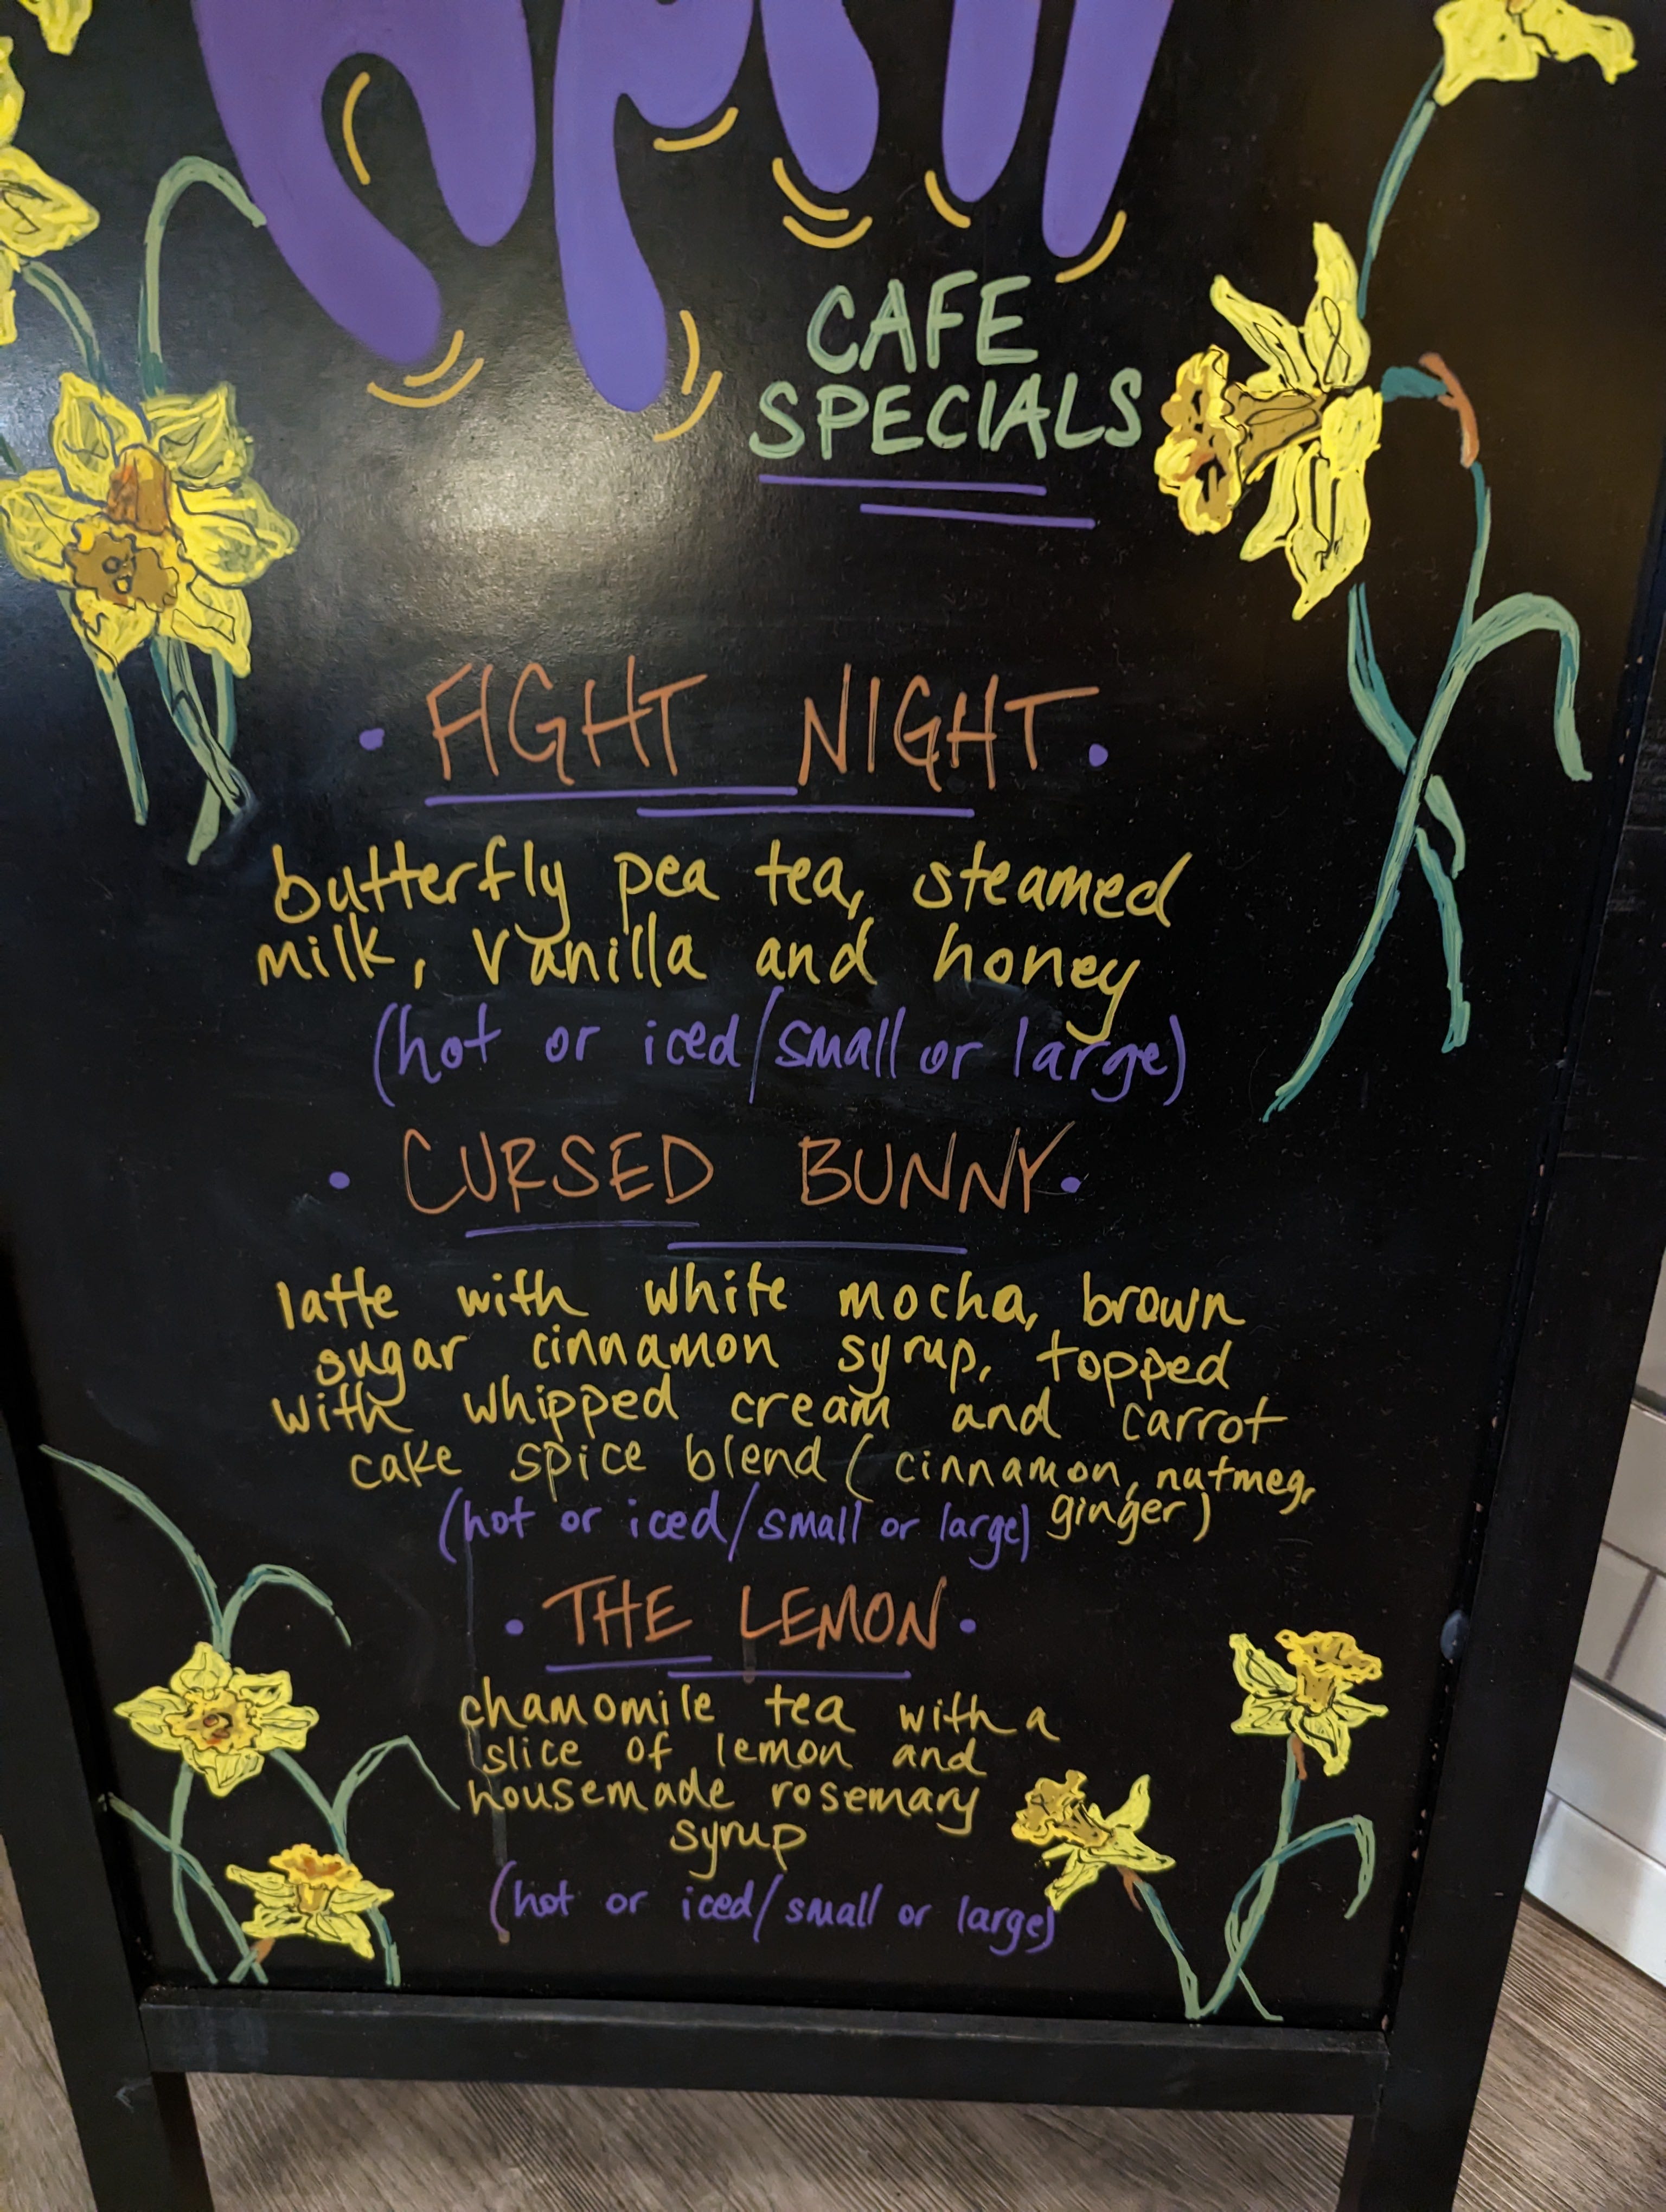 April
CAFE
SPECIALS
• FIGHT NIGHT •
butterfly pea tea, steamed
milk, vanilla and honey
(hot or iced/small or large)
• CURSED BUNNY •
latte with white mocha, brown
sugar cinnamon syrup, topped
with whipped cream and carrot
cake spice blend (cinnamon, nutmeg,
ginger)
(hot or iced/small or large)
• THE LEMON •
chamomile tea with a
slice of lemon and
housemade rosemary
syrup
(hot or iced/small or large)